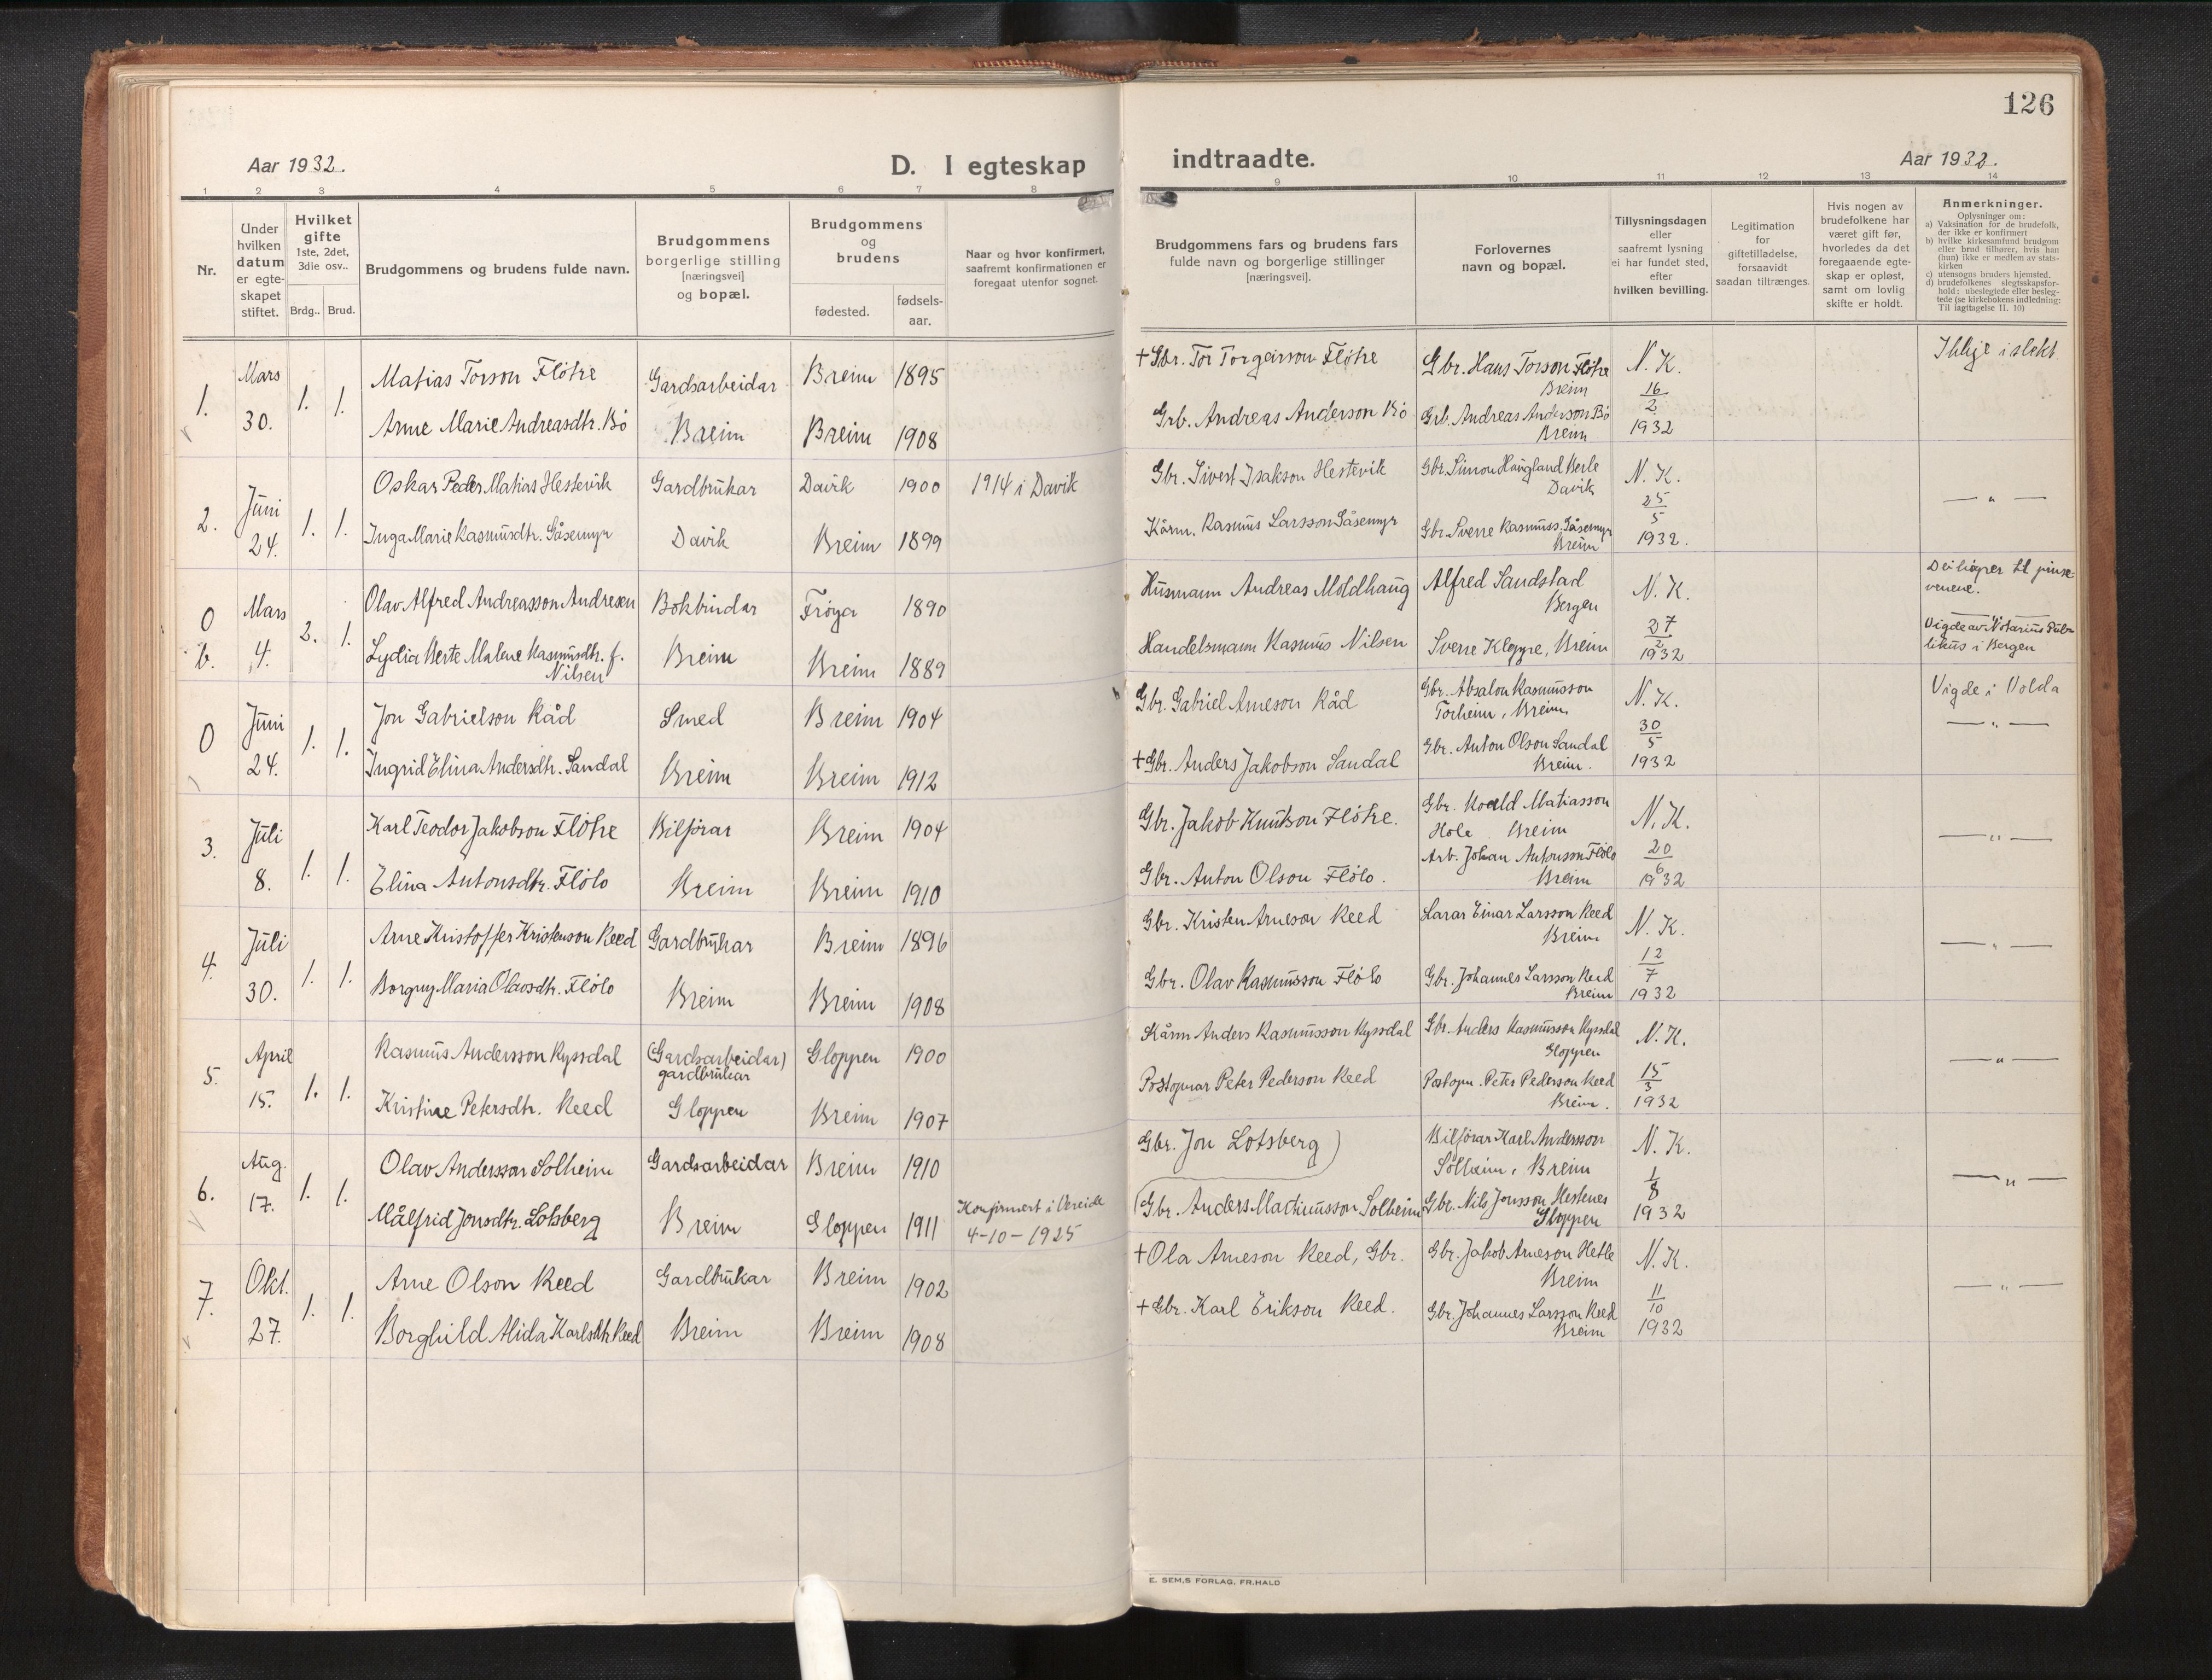 126
Aar 1932.
D. I egteskap
indtraadte.
Aar 1932.
1 2 3 4 5 6 7 8 9 10 11 12 13 14
Nr.
Under
hvilken
datum
er egte-
skapet
stiftet.
Hvilket
gifte
1ste, 2det,
3die osv..
Brdg.. Brud.
Brudgommens og brudens fulde navn.
Brudgommens
borgerlige stilling
[næringsvei]
og bopæl.
Brudgommens
og
brudens
fødested.
fødsels-
aar.
Naar og hvor konfirmert,
saafremt konfirmationen er
foregaat utenfor sognet.
Brudgommens fars og brudens fars
fulde navn og borgerlige stillinger
[næringsvei].
Forlovernes
navn og bopæl.
Tillysningsdagen
eller
saafremt lysning
ei har fundet sted,
efter
hvilken bevilling.
Legitimation
for
giftetilladelse,
forsaavidt
saadan tiltrænges.
Hvis nogen av
brudefolkene har
været gift før,
hvorledes da det
foregaaende egte-
skap er opløst,
samt om lovlig
skifte er holdt.
Anmerkninger.
Oplysninger om:
a) Vaksination for de brudefolk,
der ikke er konfirmert
b) hvilke kirkesamfund brudgom
eller brud tilhører, hvis han
(hun) ikke er medlem av stats-
kirken
c) utensogns bruders hjemsted.
d) brudefolkenes slegtsskapsfor-
hold: ubeslegtede eller besleg-
tede (se kirkebokens indledning:
Til iagttagelse II. 10)
1. Mars 30. 1. 1.
Matias Torson Fløtre Gardsarbeidar Breim 1895
Anne Marie Andreasdtr. Bø Breim Breim 1908
+Gbr. Tor Torgeirson Fløtre
Grb. Andreas Anderson Bø
Gbr. Hans Torson Fløtre
Breim
Grb. Andreas Anderson Bø
Breim
N. K.
16
2
1932
Ikkje i slekt
2. Juni 24. 1. 1.
Oskar Peder Matias Hestevik Gardbrukar Davik 1900 1914 i Davik
Inga Marie Rasmusdtr. Gåsemyr Davik Breim 1899
Gbr. Sivert Isakson Hestevik
Kårm. Rasmus Larsson Gåsemyr
Gbr. Simon Haugland Berle
Davik
Gbr. Sverre Rasmuss. Gåsemyr
Breim
N. K.
25
5
1932.
— " —
0 b. Mars 4. 2. 1.
Olav Alfred Andreasson Andresen Bokbindar Frøya 1890
Lydia Berte Malene Rasmusdtr. f.
Nilsen
Breim Breim 1889
Husmann Andreas Moldhaug
Handelsmann Rasmus Nilsen
Alfred Sandstad
Bergen
Sverre Kloppe, Breim
N. K.
27
2
1932
Dei høyrer til pinse
venene.
Vigde av Notarius Pub-
likus i Bergen
0 Juni 24. 1. 1.
Jon Gabrielson Råd Smed Breim 1904
Ingrid Elina Andersdtr. Sandal Breim Breim 1912
Gbr. Gabriel Arneson Råd
+Gbr. Anders Jakobson Sandal
Gbr. Absalon Rasmusson
Torheim, Breim.
Gbr. Anton Olson Sandal
Breim.
N. K.
30
5
1932
Vigde i Volda
— " —
3. Juli 8. 1. 1.
Karl Teodor Jakobson Fløtre Bilførar Breim 1904
Elina Antonsdtr. Fløto Breim Breim 1910
Gbr. Jakob Knutson Fløtre.
Gbr. Anton Olson Fløto.
Gbr. Matiasson
Hole Breim
Arb. Johan Antonsson Fløto
Breim
N. K.
20
6
1932
— " —
4. Juli 30. 1. 1.
Arne Kristoffer Kristenson Reed Gardbrukar Breim 1896
Borgny Maria Olavsdtr. Fløto Breim Breim 1908
Gbr. Kristen Arneson Reed
Gbr. Olav Rasmusson Fløto
Lærar Einar Larsson Reed
Breim
Gbr. Johannes Larsson Reed
Breim
N. K.
12
7
1932
— " —
5. April 15. 1. 1.
Rasmus Andersson Ryssdal (Gardsarbeidar) Gloppen 1900
gardbrukar
Kristine Petersdtr. Reed Gloppen Breim 1907
Kårm Anders Rasmusson Ryssdal
Postopnar Peter Pederson Reed
Gbr. Anders Rasmusson Ryssdal
Gloppen
Postopn. Peter Pederson Reed
Breim.
N. K.
15
3
1932
— " —
6. Aug. 17. 1. 1.
Olav Andersson Solheim Gardsarbeidar Breim 1910
Målfrid Jonsdtr. Lotsberg Breim Gloppen 1911
Konfirmert i Vereide
4-10-1925
Gbr. Jon Lotsberg)
(Gbr. Anders Martinusson Solheim
Bilførar Karl Andersson
Solheim, Breim
Gbr. Nils Jonsson Hestenes
Gloppen
N. K.
1
8
1932
— " —
7. Okt. 27. 1. 1.
Arne Olson Reed Gardbrukar Breim 1902
Borghild Alida Karlsdtr. Reed Breim Breim 1908
+Ola Arneson Reed, Gbr.
+Gbr. Karl Erikson Reed.
Gbr. Jakob Arneson Hetle
Breim
Gbr. Johannes Larsson Reed
Breim
N. K.
11
10
1932
— " —
E. SEM,S FORLAG, FR.HALD